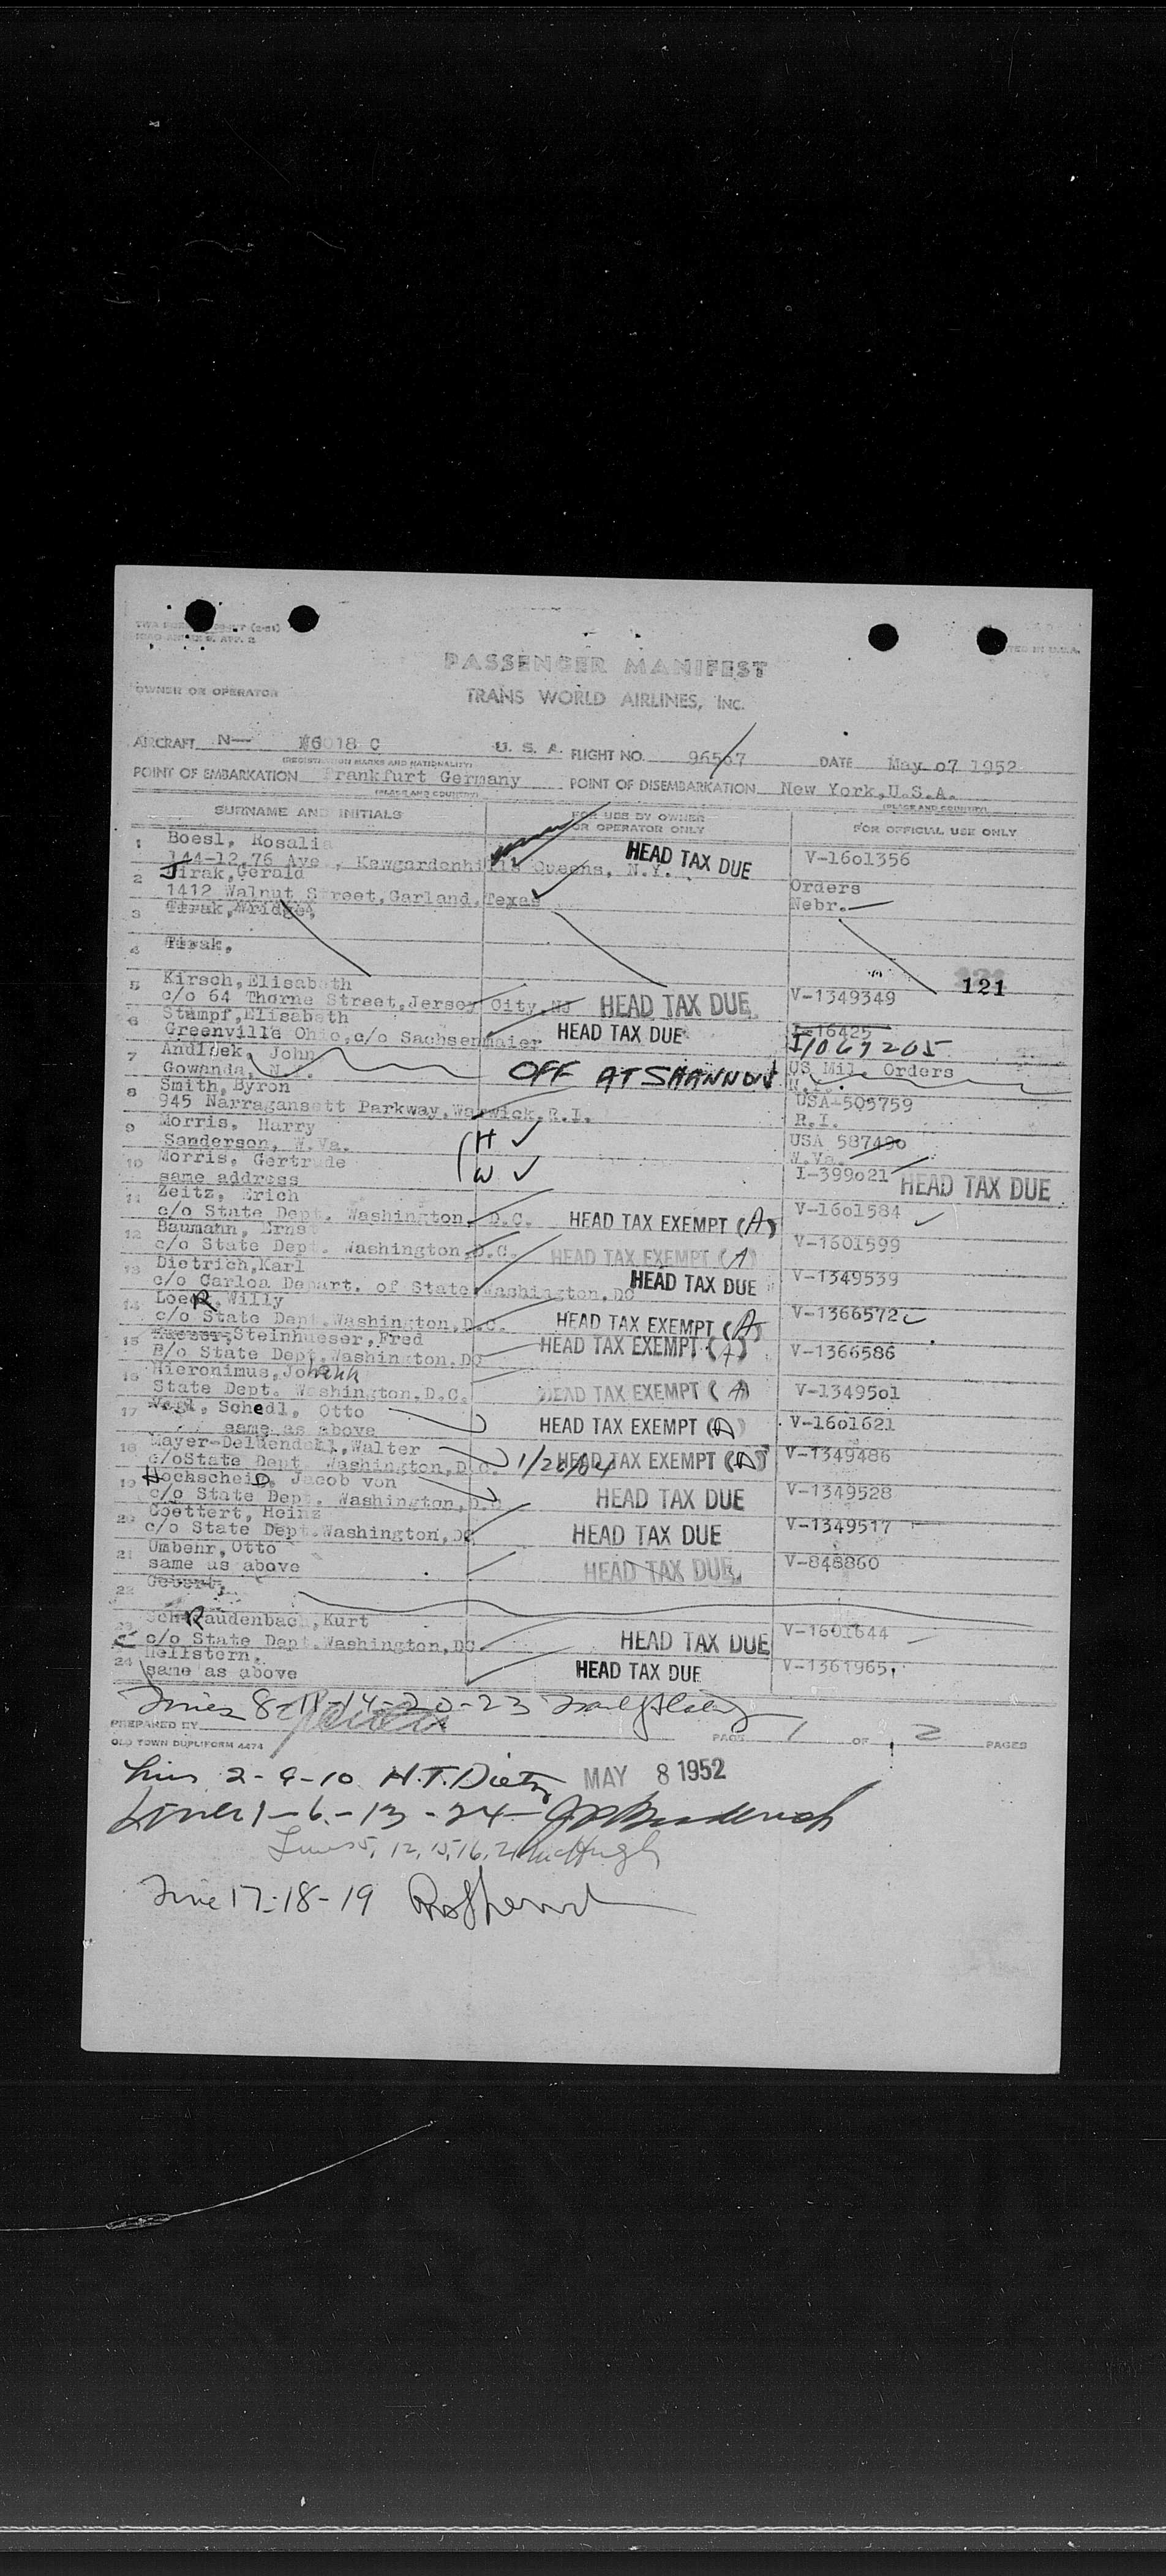 PRINTED IN U.S.A.
PASSENGER MANIFEST
OWNER OR OPERATOR
TRANS WORLD AIRLINES, INC.
AIRCRAFT N— 6018 C U. S. A. FLIGHT NO. 96567 DATE May 07 1952
(REGISTRATION MARKS AND NATIONALITY)
POINT OF EMBARKATION Frankfurt Germany POINT OF DISEMBARKATION New York,U.S.A.
(PLACE AND COUNTRY) (PLACE AND COUNTRY)
SURNAME AND INITIALS FOR USE BY OWNER OR OPERATOR ONLY FOR OFFICIAL USE ONLY
1 Boesl, Rosalia HEAD TAX DUE V-1601356
144-12,76 Ave., Kewgardenhills Queens, N.Y.
2 Jirak,Gerald Orders
1412 Walnut Street,Garland,Texas Nebr.
3
4 Tirak,
121
5 Kirsch,Elisabeth V-1349349
c/o 64 Thorne Street,Jersey City,NJ HEAD TAX DUE
6 Stampf,Elisabeth HEAD TAX DUE I-16425
Greenville Ohio,c/o Sachsenmaier I1069205
7 Andlbek, John OFF AT SHANNON US Mil. Orders
Gowanda, N.Y. N.Y.
8 Smith,Byron USA-505759
945 Narragansett Parkway,Warwick,R.I. R.I.
9 Morris, Harry H USA 587490
Sanderson, W.Va. W.Va.
10 Morris, Gertrude W I-399021 HEAD TAX DUE
same address
11 Zeitz, Erich V-1601584
c/o State Dept. Washington D.C. HEAD TAX EXEMPT (A)
12 Baumann, Ernst V-1601599
c/o State Dept. Washington D.C. HEAD TAX EXEMPT (A)
13 Dietrich,Karl HEAD TAX DUE V-1349539
c/o Carloa Depart. of State Washington,DC
14 Loer,Willy V-1366572
c/o State Dept.Washington,D.C. HEAD TAX EXEMPT (A)
15 Steinhueser,Fred HEAD TAX EXEMPT (A) V-1366586
B/o State Dept.Washington,DC
16 Hieronimus,Johann V-1349501
State Dept. Washington,D.C. HEAD TAX EXEMPT (A)
17 Schedl, Otto HEAD TAX EXEMPT (A) V-1601621
same as above
18 Mayer-Deldendahl,Walter V-1349486
c/oState Dept. Washington,D.C. HEAD TAX EXEMPT (A)
19 Hochscheid, Jacob von V-1349528
c/o State Dept. Washington,D.C HEAD TAX DUE
20 Goettert, Heinz V-1349517
c/o State Dept.Washington,DC HEAD TAX DUE
21 Ombehr,Otto V-848860
same as above HEAD TAX DUE
22 Gebert,
23 Raudenbach,Kurt V-1601644
c/o State Dept.Washington,DC HEAD TAX DUE
24 Hellstern, HEAD TAX DUE V-1361965
same as above
Lines 8-11-14-20-23
PREPARED BY PAGE 1 OF 2 PAGES
OLD TOWN DUPLIFORM 4474
Lines 2-9-10 H.T.Dietz MAY 8 1952
Lines 1-6-13-24
Lines 5, 12, 15, 16, 21 McHugh
Line 17-18-19